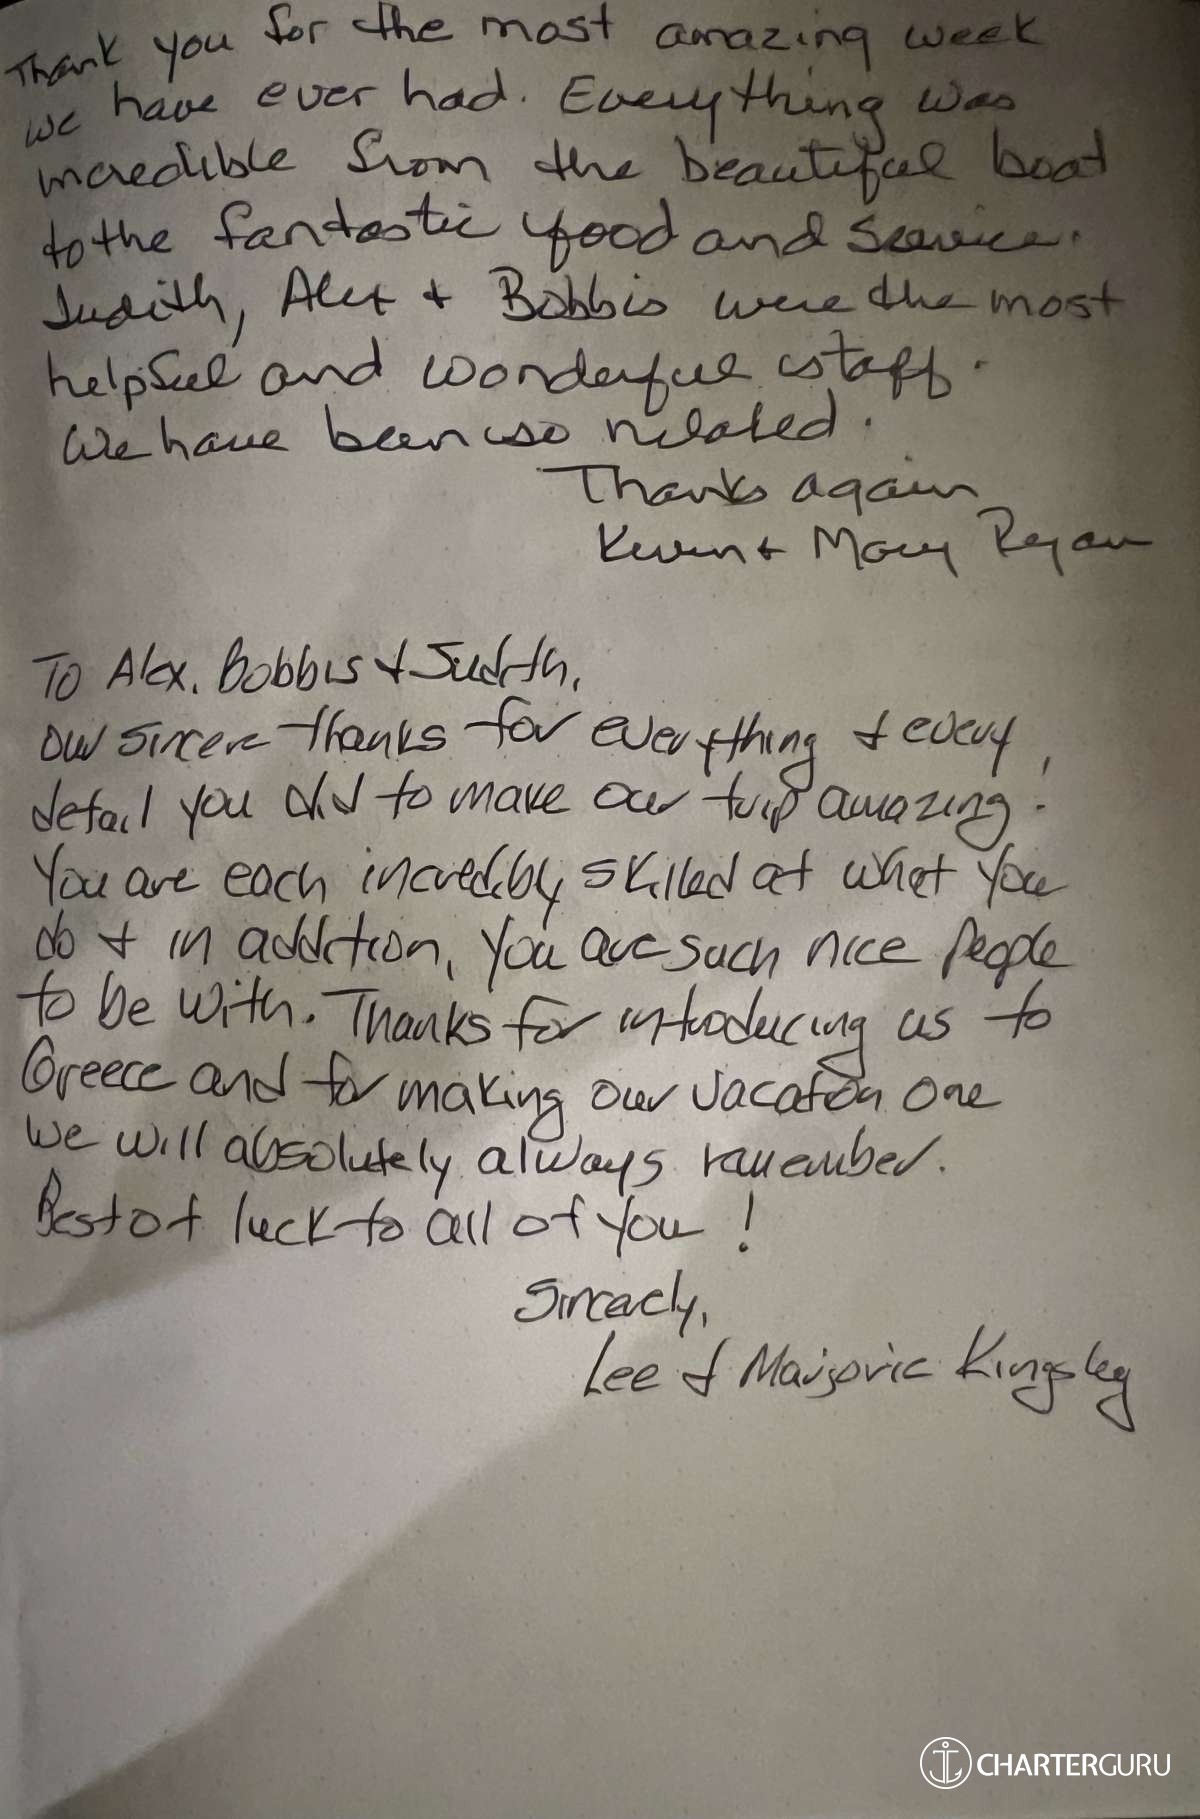 Thank you for the most amazing week
we have ever had. Everything was
incredible from the beautiful boat
to the fantastic food and service.
Judith, Alex + Bobbis were the most
helpful and wonderful staff.
We have been so relaxed.
Thanks again
Kevin + Mary Ryan
To Alex, Bobbis + Judith,
Our sincere thanks for everything + every
detail you did to make our trip amazing!
You are each incredibly skilled at what you
do + in addition, you are such nice people
to be with. Thanks for introducing us to
Greece and for making our vacation one
we will absolutely always remember.
Best of luck to all of you!
Sincerely,
Lee & Marjorie Kingsley
CHARTERGURU